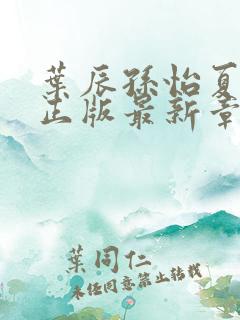 葉辰孫怡夏
正版最新章
葉同仁
未经同意禁止转载